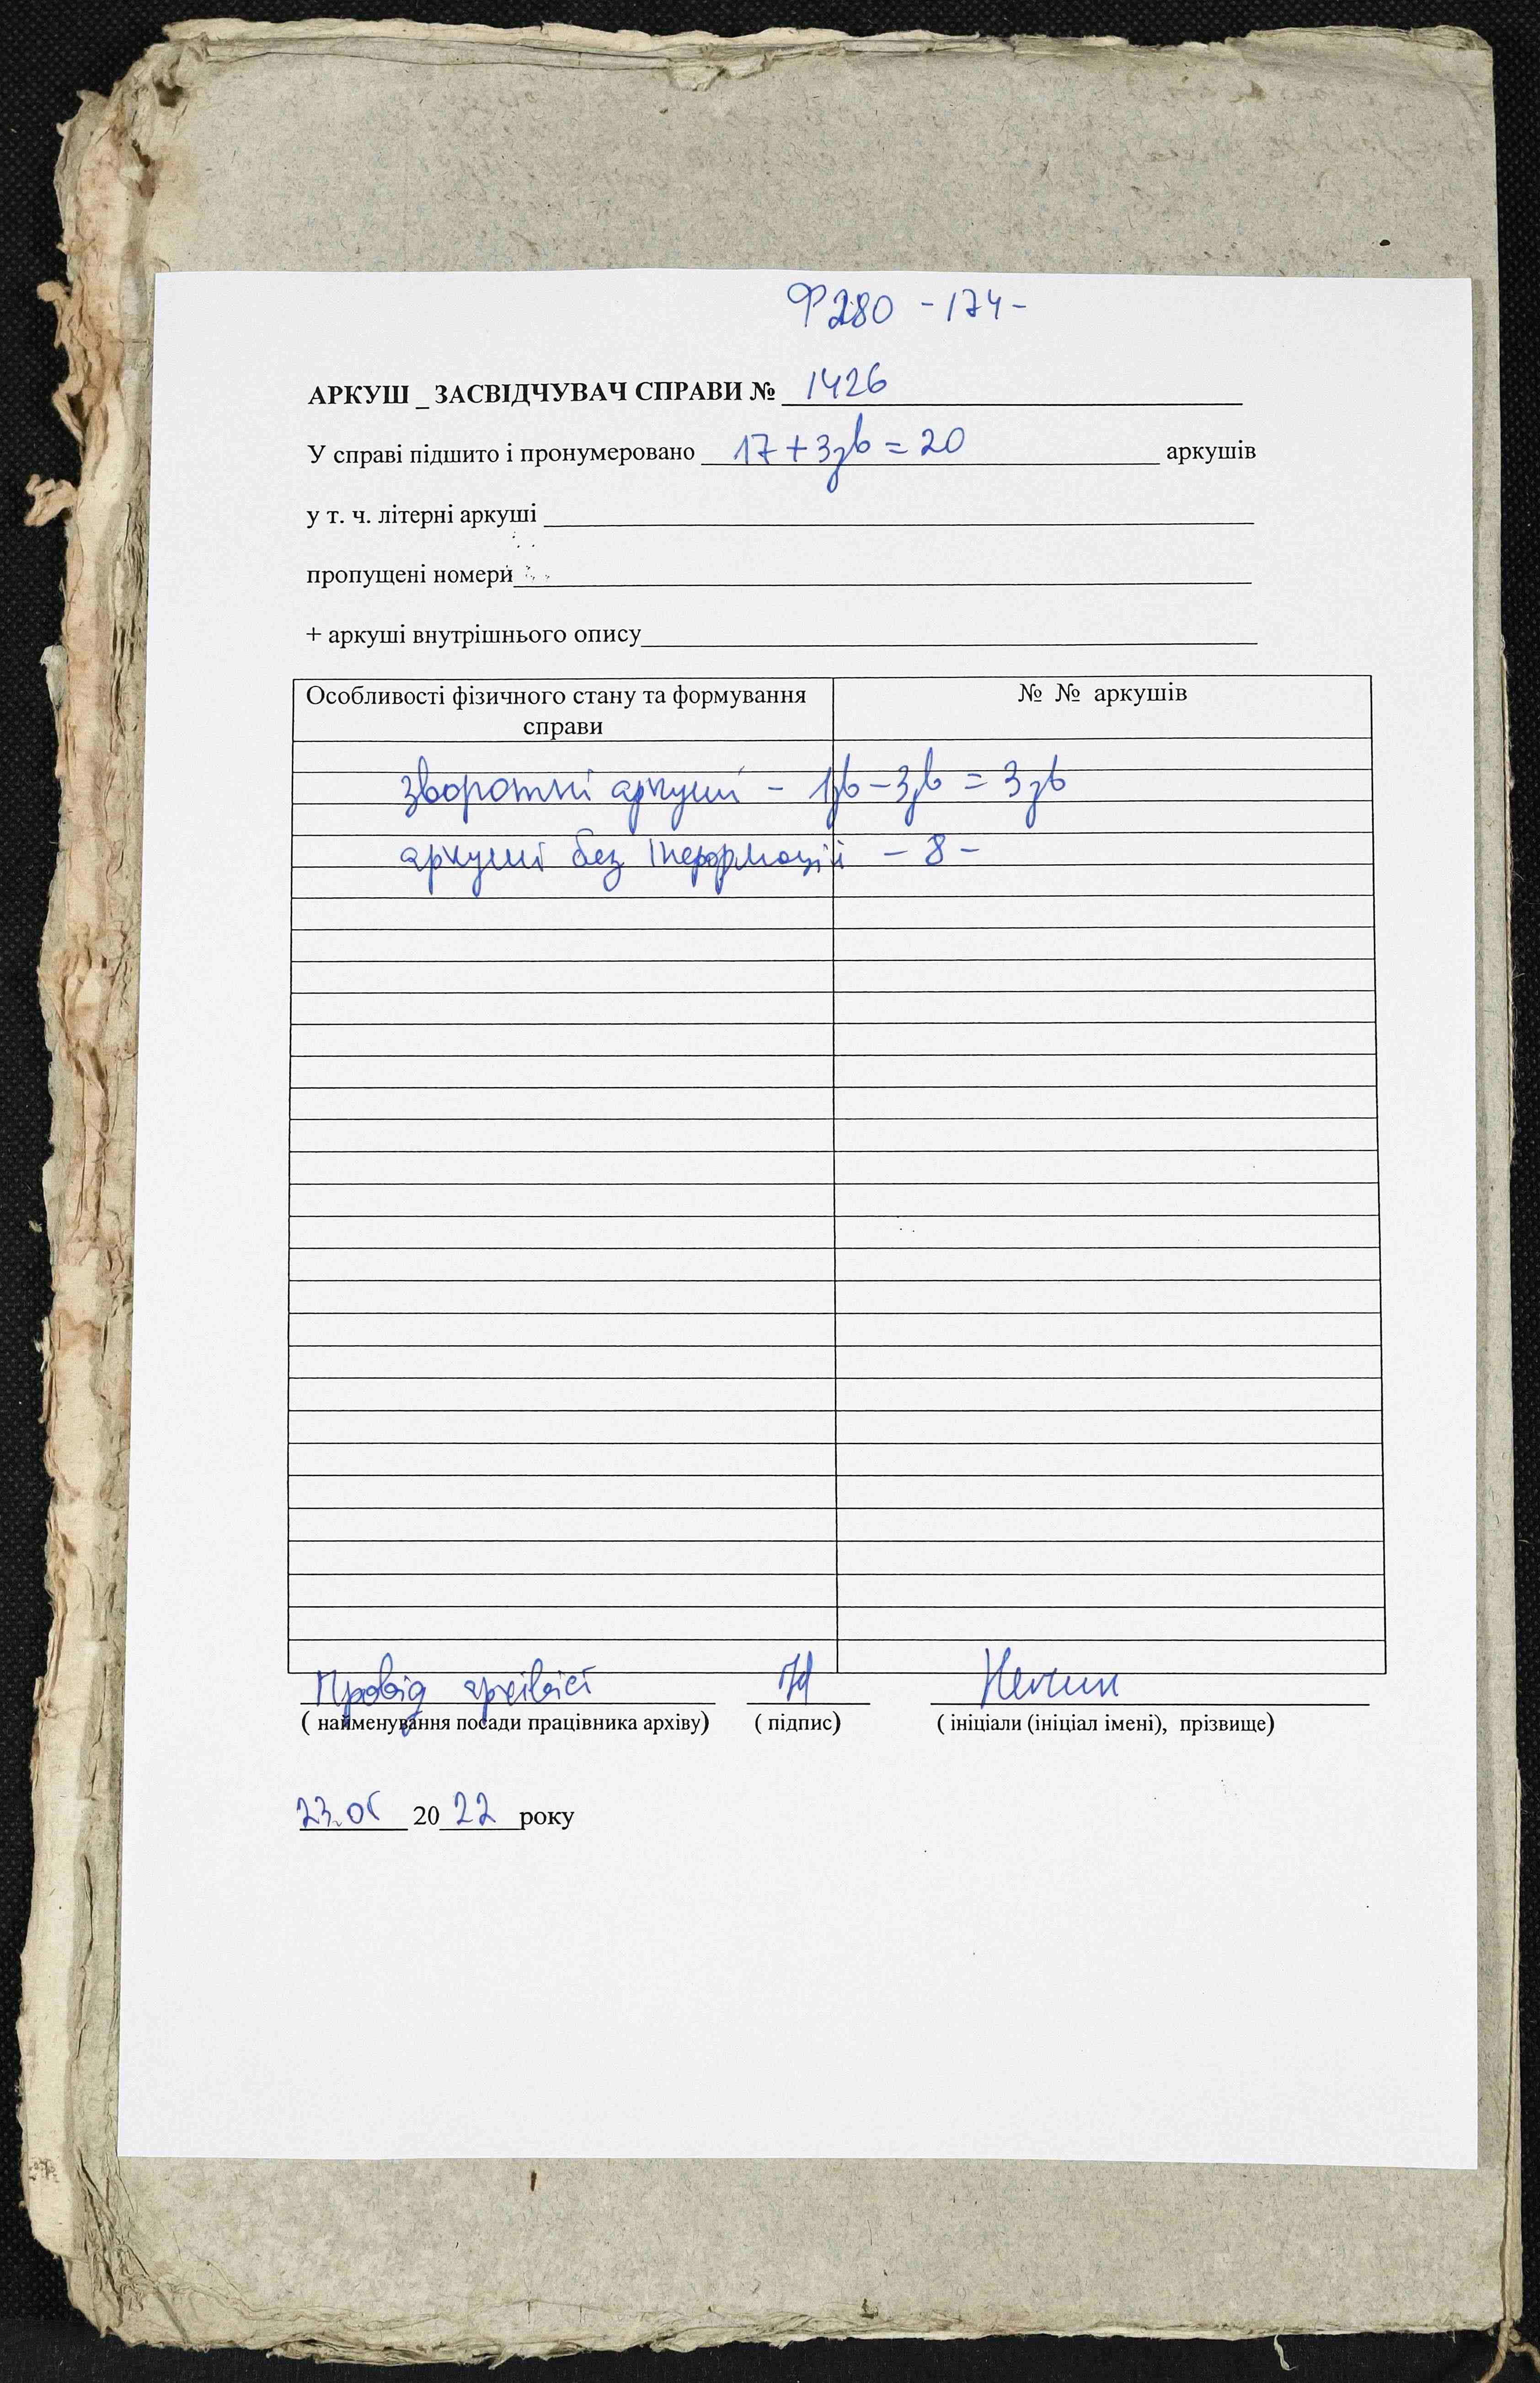 Ф280 - 174 -
АРКУШ _ ЗАСВІДЧУВАЧ СПРАВИ № 1426
У справі підшито і пронумеровано 17 + 3зв = 20 аркушів
у т. ч. літерні аркуші
пропущені номери
+ аркуші внутрішнього опису
Особливості фізичного стану та формування справи
№ № аркушів
зворотні аркуші - 1зв - 3зв = 3зв
аркуші без інформації - 8 -
Провід архівіст
( найменування посади працівника архіву) ( підпис) ( ініціали (ініціал імені), прізвище)
2022 року